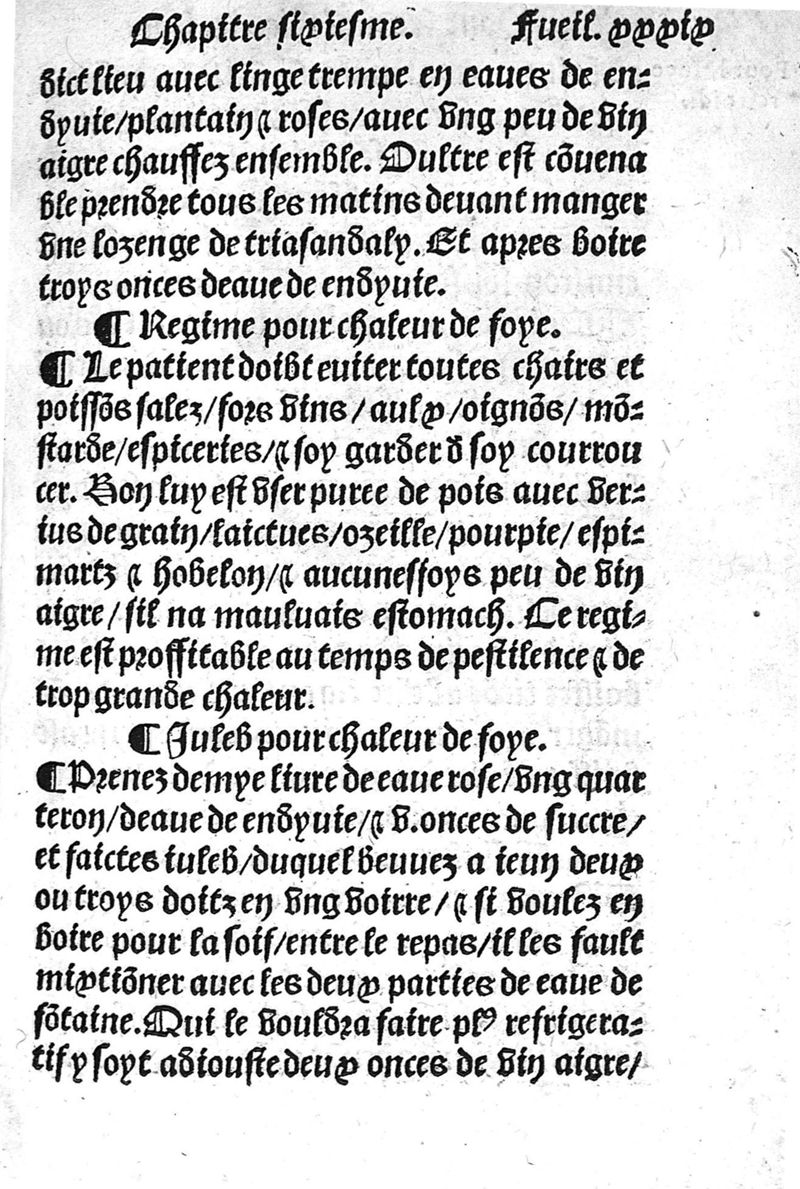 Chapitre sixiesme. Fueil. xxxix
dict lieu avec linge trempe en eaues de en-
dyuie/plantain ⁊ roses/avec vng peu de vin
aigre chauffez ensemble. Oultre est cõuena
ble prendre tous les matins devant manger
vne lozenge de triasandaly. Et apres boire
troys onces deaue de endyuie.
¶ Regime pour chaleur de foye.
¶ Le patient doibt euiter toutes chairs et
poissõs salez/fors vins/aulx/oignõs/mõ-
starde/espiceries/⁊ soy garder d̃ soy courrou
cer. Bon luy est vser puree de pois avec ver-
ius de grain/laictues/ozeille/pourpie/espi-
martz ⁊ hobelon/⁊ aucunesfoys peu de vin
aigre/sil na mauluais estomach. Ce regi-
me est proffitable au temps de pestilence ⁊ de
trop grande chaleur.
¶ Juleb pour chaleur de foye.
¶ Prenez demye liure de eaue rose/vng quar
teron/deaue de endyuie/⁊ v.onces de succre/
et faictes iuleb/duquel beuuez a ieun deux
ou troys doitz en vng voirre/⁊ si voulez en
boire pour la soif/entre le repas/il les fault
mixtiõner avec les deux parties de eaue de
fõtaine. Qui le vouldra faire plꝰ refrigera-
tif y soyt adiouste deux onces de vin aigre/